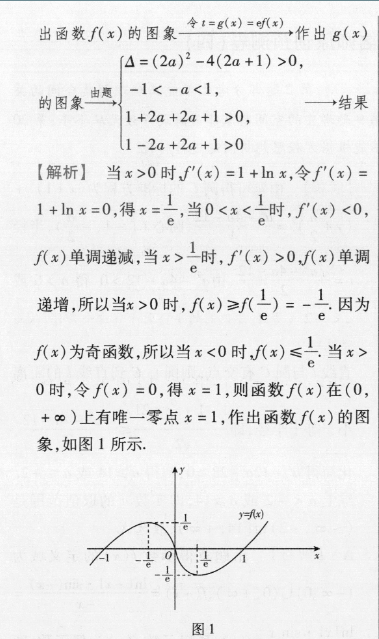 出函数f(x)的图象 令t=g(x)=ef(x)→ 作出g(x)
的图象 由题→ { Δ=(2a)²-4(2a+1)>0,
-1<-a<1,
1+2a+2a+1>0,
1-2a+2a+1>0
→结果
【解析】 当x>0时,f′(x)=1+ln x,令f′(x)=
1+ln x=0,得x=1/e,当0<x<1/e时,f′(x)<0,
f(x)单调递减,当x>1/e时,f′(x)>0,f(x)单调
递增,所以当x>0时,f(x)≥f(1/e)=-1/e.因为
f(x)为奇函数,所以当x<0时,f(x)≤1/e.当x>
0时,令f(x)=0,得x=1,则函数f(x)在(0,
+∞)上有唯一零点x=1,作出函数f(x)的图
象,如图1所示.
y
1/e
y=f(x)
-1 -1/e O 1/e 1 x
-1/e
图1